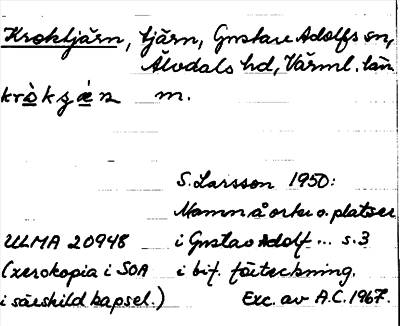 Kroktjärn, tjärn, Gustav Adolfs sn,
Älvdals hd, Värml. län
kròkçæ̀ṇ m.
S. Larsson 1950:
Namn å orter o. platser
ULMA 20948 i Gustav Adolf ... s. 3
(xerokopia i SOA i bif. förteckning.
i särskild kapsel.) Exc. av A.C. 1967.